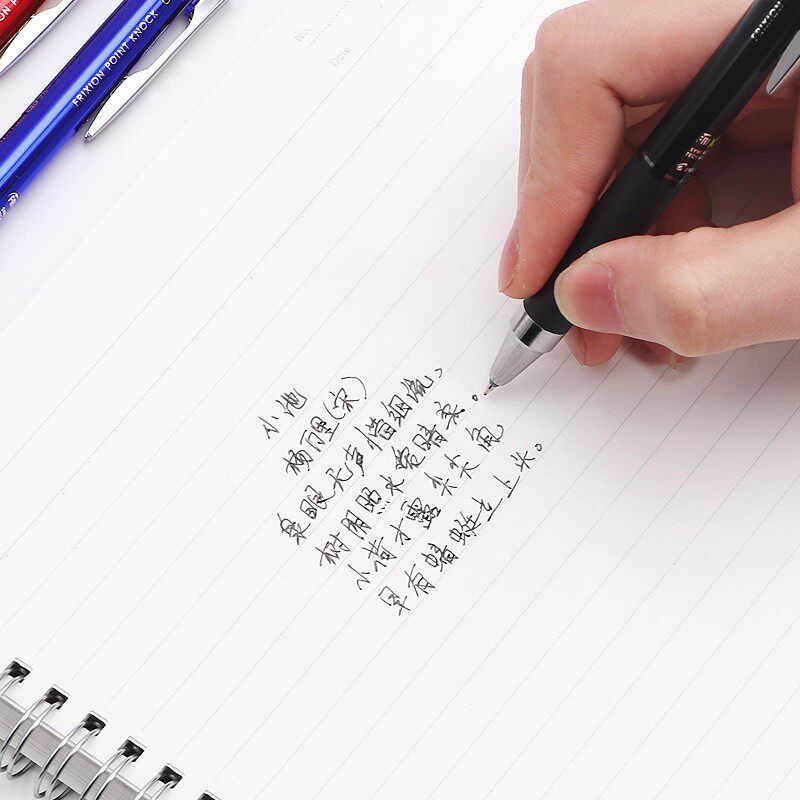 FRIXION POINT KNOCK
No.
Date
FRIXION
小池
杨万里(宋)
泉眼无声惜细流,
树阴照水爱晴柔。
小荷才露尖尖角
早有蜻蜓立上头。